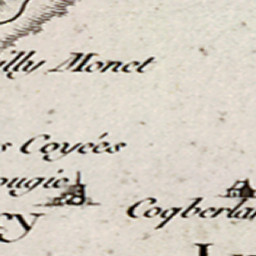 illy Monet
s Coyées
ougie
cy
Coqberlan